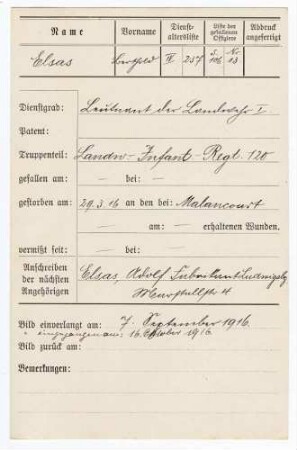 Name Vorname Dienst-altersliste Liste der gefallenen Offiziere Abdruck angefertigt
Elsas Berthold II 257 S. 106 Nr. 13
Dienstgrad: Leutnant der Landwehr I.
Patent: —
Truppenteil: Landw-Infant-Regt. 120
gefallen am: — bei: —
gestorben am: 29.3.16 an den bei: Malancourt
— am: — erhaltenen Wunden.
vermißt seit: — bei: —
Anschreiben der nächsten Angehörigen
Elsas, Adolf Fabrikant Ludwigsbg
4
Bild einverlangt am: 7. September 1916.
" eingegangen am: 16. Oktober 1916
Bild zurück am:
Bemerkungen: